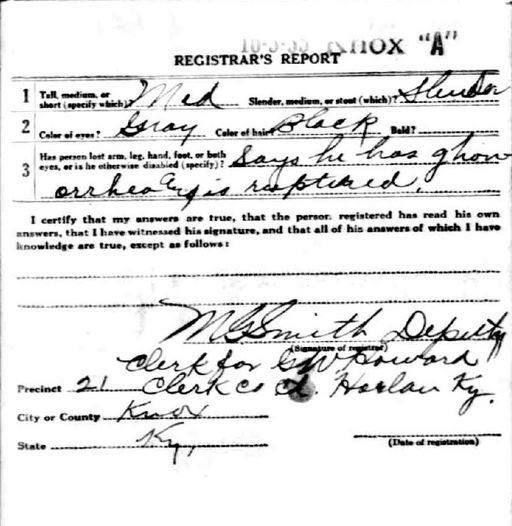 10-5-35 KNOX "A"
REGISTRAR'S REPORT
1 Tall, medium, or short (specify which)? Med Slender, medium, or stout (which)? Slender
2 Color of eyes? Gray Color of hair? Black Bald?
3 Has person lost arm, leg, hand, foot, or both
eyes, or is he otherwise disabled (specify)? Says he has ghon
orrhea & is ruptured.
I certify that my answers are true, that the person registered has read his own
answers, that I have witnessed his signature, and that all of his answers of which I have
knowledge are true, except as follows:
M G Smith Deputy
(Signature of registrar)
Clerk for G W Howard
Precinct 21 Clerk Co Ct. Harlan Ky.
City or County Knox
State Ky,
(Date of registration)